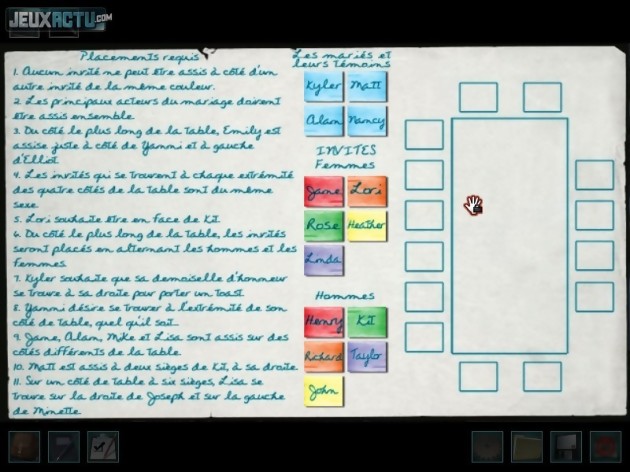 JEUXACTU.COM
Placements requis
1. Aucun invité ne peut être assis à côté d'un
autre invité de la même couleur.
2. Les principaux acteurs du mariage doivent
être assis ensemble.
3. Du côté le plus long de la table, Emily est
assise juste à côté de Yanni et à gauche
d'Elliot.
4. Les invités qui se trouvent à chaque extrémité
des quatre côtés de la table sont du même
sexe.
5. Lori souhaite être en face de Kit.
6. Du côté le plus long de la table, les invités
seront placés en alternant les hommes et les
femmes.
7. Kyler souhaite que sa demoiselle d'honneur
se trouve à sa droite pour porter un toast
8. Yanni désire se trouver à l'extrémité de son
côté de table, quel qu'il soit.
9. Jane, Alan, Mike et Lisa sont assis sur des
côtés différents de la table.
10. Matt est assis à deux sièges de Kit, à sa droite.
11. Sur un côté de table à six sièges, Lisa se
trouve sur la droite de Joseph et sur la gauche
de Minette.
Les mariés et
leurs témoins
Kyler Matt
Alan Nancy
INVITES
Femmes
Jane Lori
Rose Heather
Linda
Hommes
Henry Kit
Richard Taylor
John